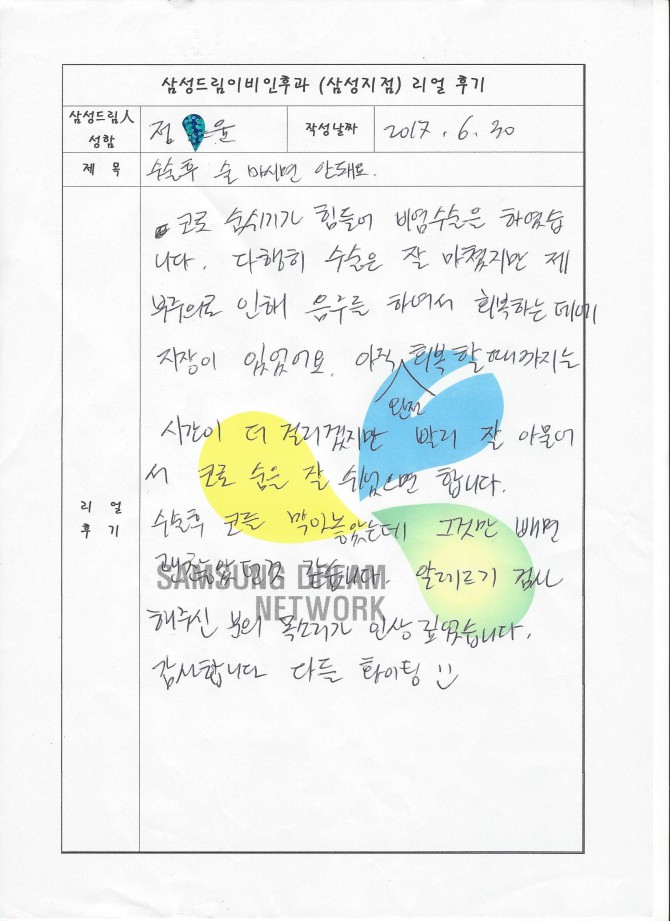 삼성드림이비인후과 (삼성지점) 리얼 후기
삼성드림人
성함
정 윤
작성날짜
2017. 6. 30
제 목
수술후 술 마시면 안돼요.
코로 숨쉬기가 힘들어 비염수술을 하였습
니다. 다행히 수술은 잘 마쳤지만 제
부주의로 인해 음주를 하여서 회복하는 데에
지장이 있었어요. 아직 완전 회복할때까지는
시간이 더 걸리겠지만 빨리 잘 아물어
서 코로 숨을 잘 쉬었으면 합니다.
리 얼
후 기
수술후 코를 막아놓았는데 그것만 빼면
괜찮았던것 같습니다. 알레르기 검사
SAMSUNG DREAM
NETWORK
해주신 분의 목소리가 인상 깊었습니다.
감사합니다 다들 화이팅 :)